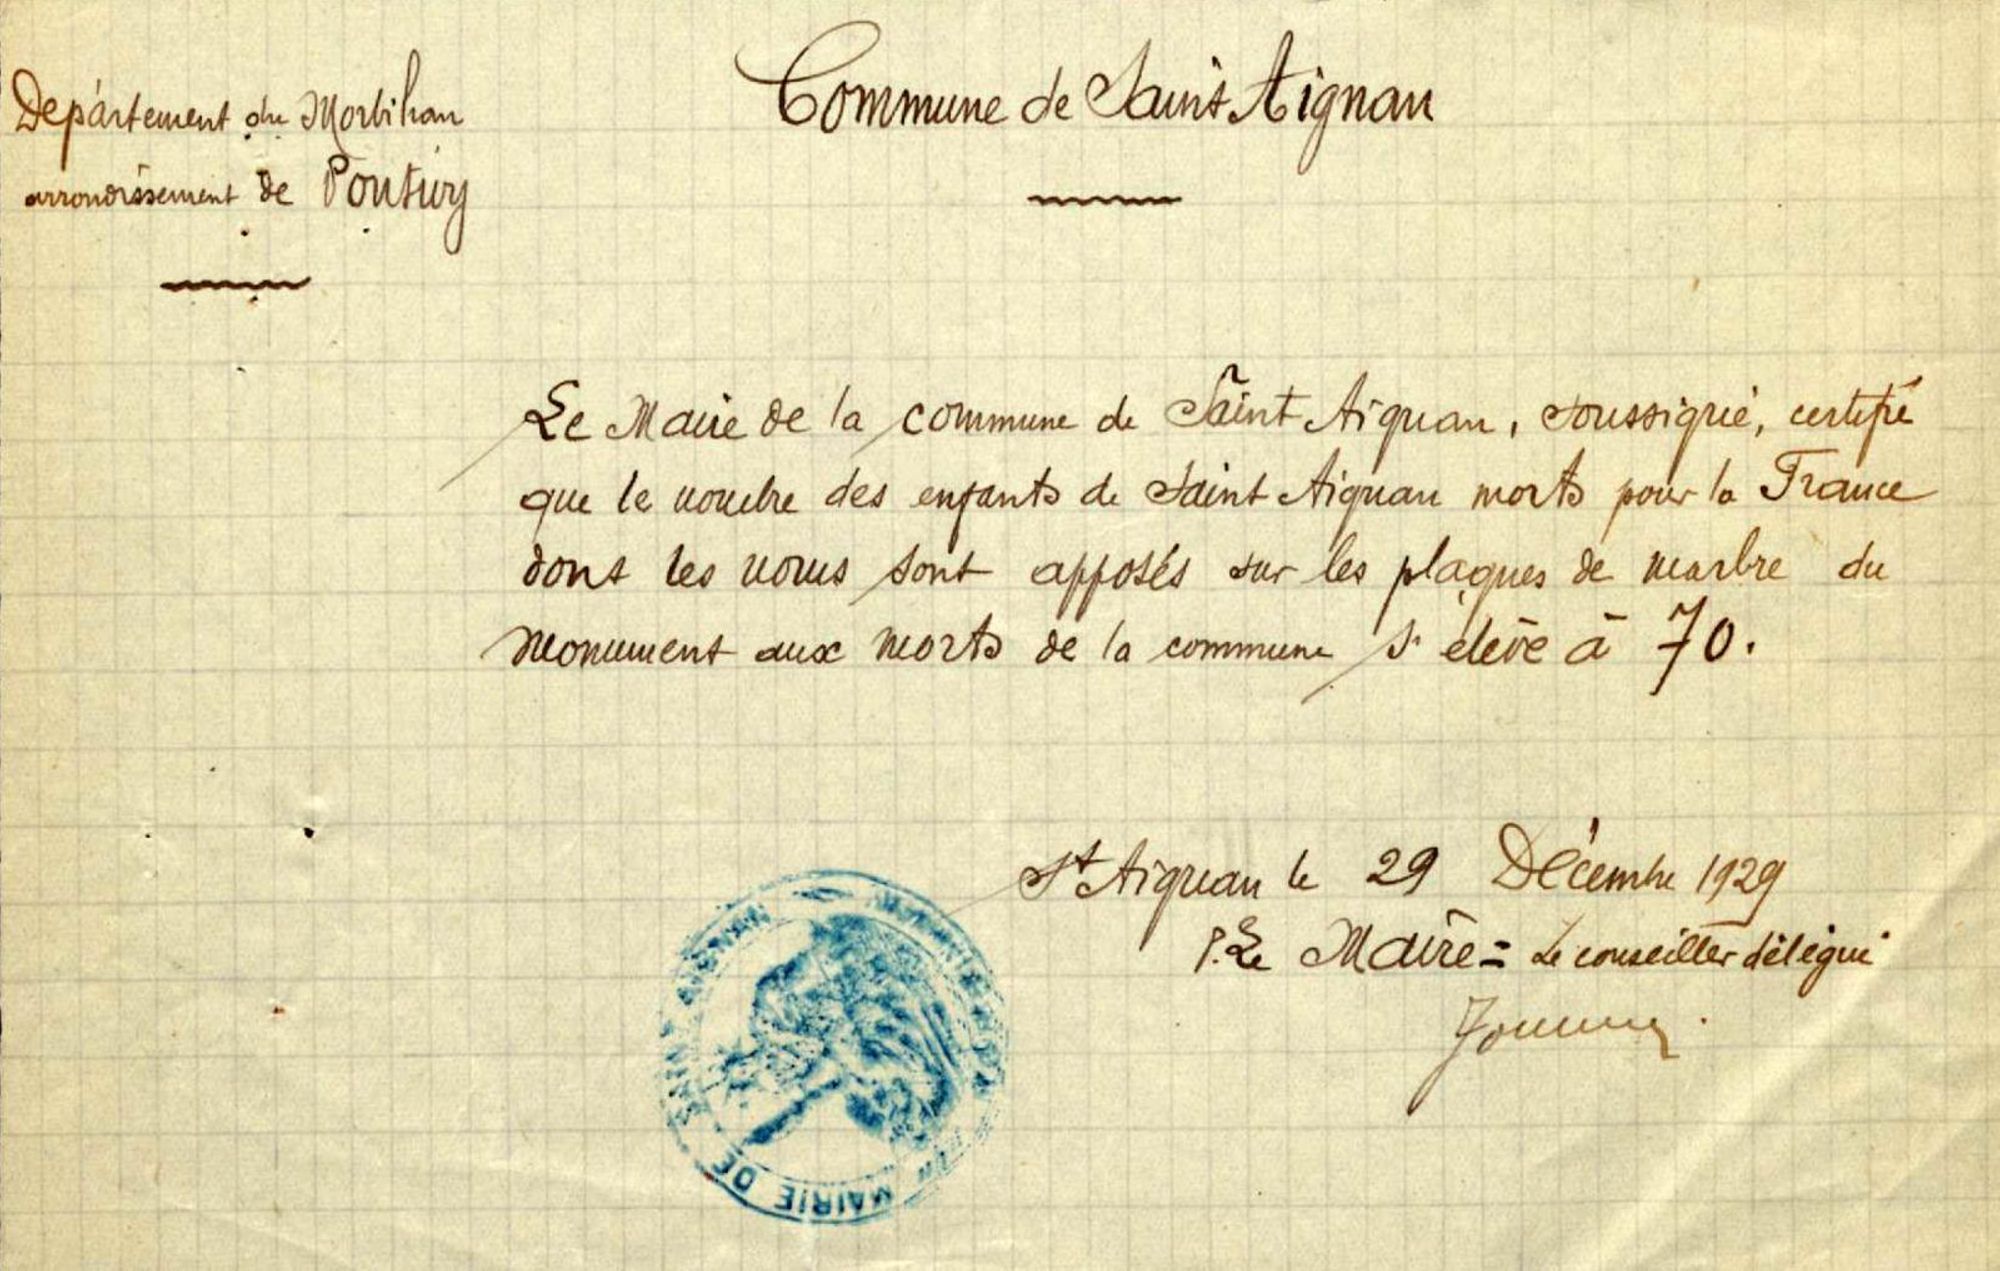 Commune de Saint Aignan
Département du Morbihan
arrondissement de Pontivy
Le Maire de la commune de Saint Aignan, soussigné, certifie
que le nombre des enfants de Saint Aignan morts pour la France
dont les noms sont apposés sur les plaques de marbre du
Monument aux morts de la commune s'élève à 70.
St Aignan le 29 Décembre 1929
P. Le Maire = Le conseiller délégué
MAIRIE DE SAINT AIGNAN